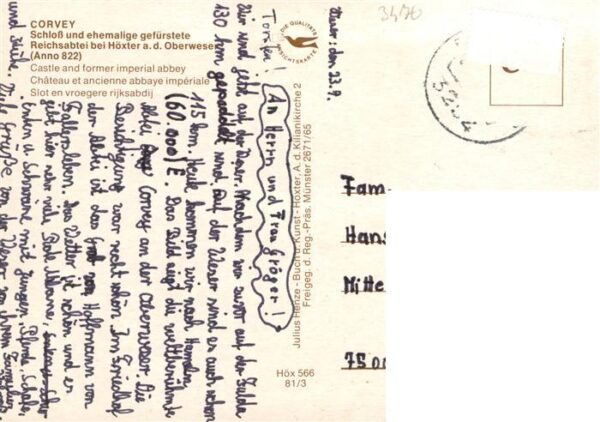 CORVEY
Schloß und ehemalige gefürstete
Reichsabtei bei Höxter a. d. Oberweser
(Anno 822)
Castle and former imperial abbey
Château et ancienne abbaye impériale
Slot en vroegere rijksabdij
DIE QUALITÄTS
ANSICHTSKARTE
3470
Weser, den 23.9.
An Herrn und Frau Gröger!
Wir sind jetzt auf der Weser. Nachdem wir zuvor auf der Fulda
130 km gepaddelt sind. Auf der Weser sind es auch schon
115 km. Heute kommen wir nach Hameln
(60.000) E. Das Bild zeigt die weltberühmte
Abtei Corvey an der Oberweser. Die
Besichtigung war recht schön. Im Friedhof
der Abtei ist das Grab von Hoffmann von
Fallersleben. Das Wetter ist schön und es
geht hier sehr viele
Enten, Schwäne mit Jungen, Pferde, Schafe,
und Kühe. Viele Grüße von der Weser von Ihrem
Julius Henze - Buch u. Kunst - Höxter, A. d. Kilianikirche 2
Freigeg. d. Reg.-Präs. Münster 2671/65
Höx 566
81/3
Fam
Hans
Mitte
7500